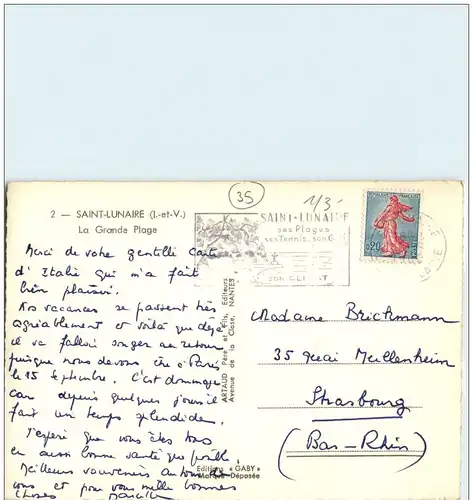 35
1/3-
2 — SAINT-LUNAIRE (I.-et-V.)
La Grande Plage
SAINT-LUNAIRE
ses Plages
ses Tennis, son G
SON CLIMAT
REPUBLIQUE FRANCAISE
0,20
POSTES
Merci de votre gentille carte
d'Italie qui m'a fait
bien plaisir.
Nos vacances se passent très
agréablement et voilà que déjà
il va falloir songer au retour
puisque nous devons être à Paris
le 15 septembre. C'est dommage
car depuis quelques jours il
fait un temps splendide.
J'espère que vous êtes tous
en aussi bonne santé que
Meilleurs souvenirs
vous et pour vous mille bonnes
choses
ARTAUD Père et Fils, Editeurs
Avenue de la Close, NANTES
Editions « GABY »
Marque Déposée
Madame Brickmann
35 Quai Mullenheim
Strasbourg
(Bas-Rhin)